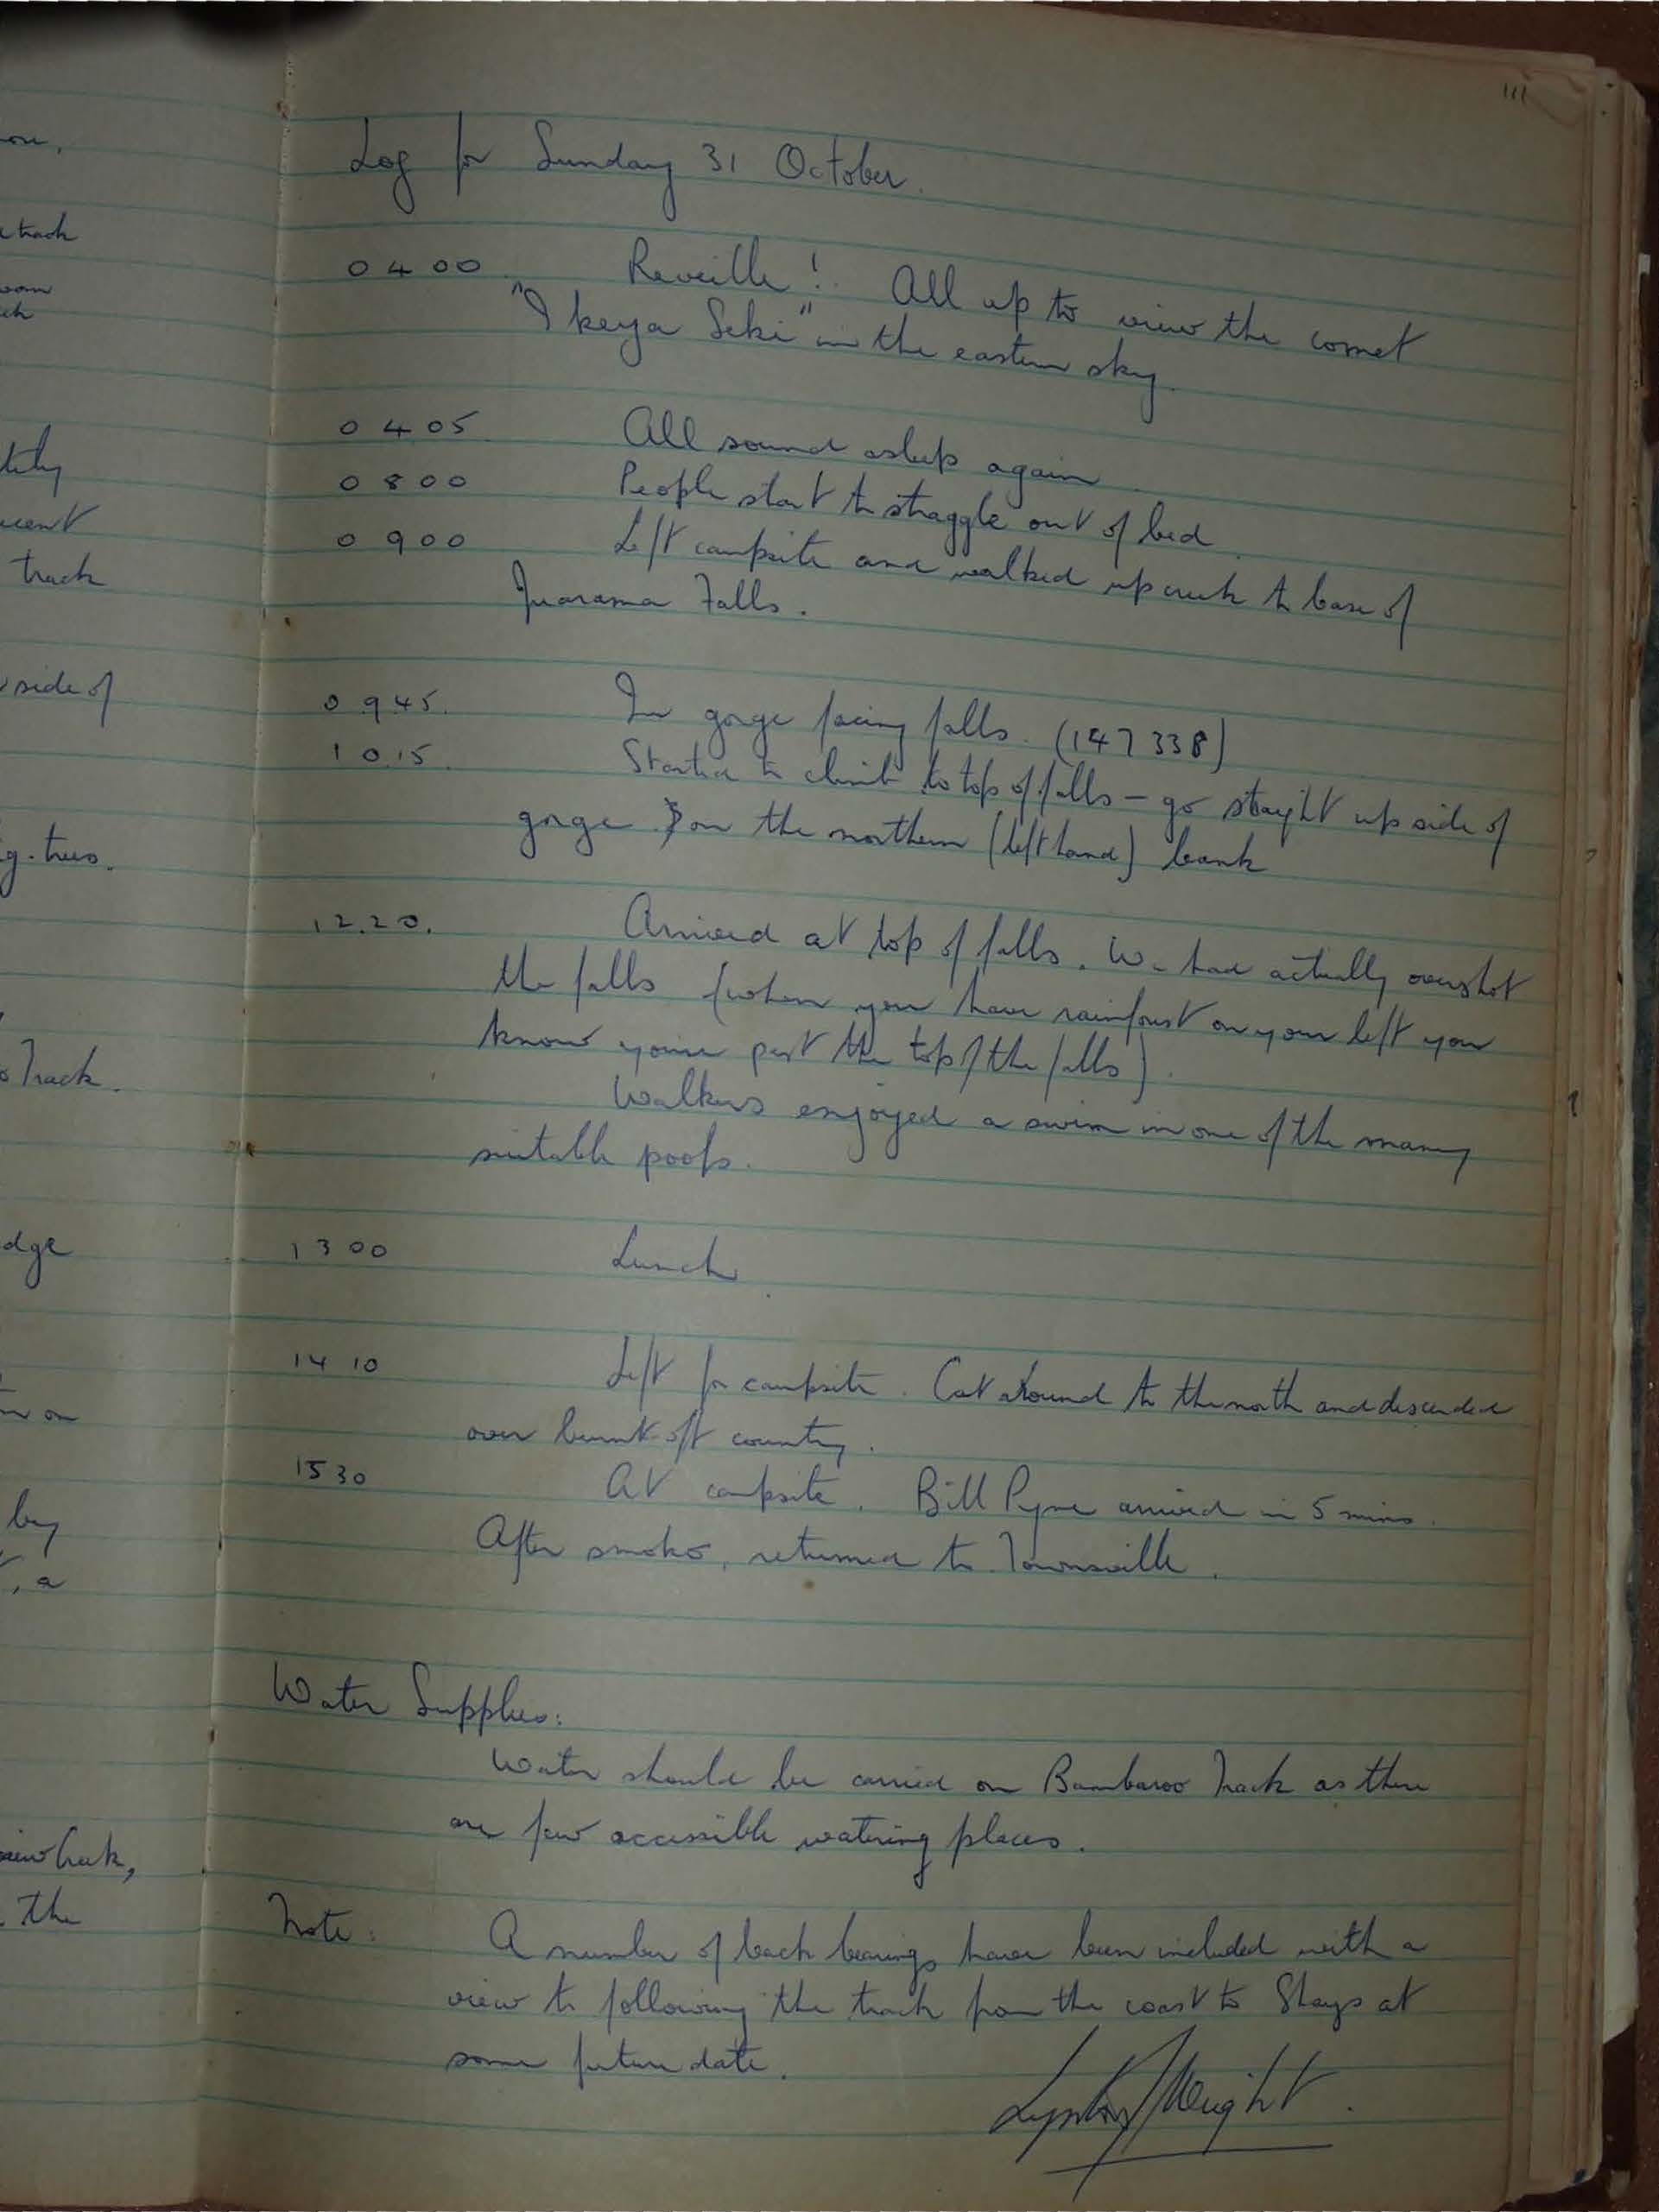 111
Log for Sunday 31 October.
0400 Reveille! All up to view the comet
"Ikeya Seki" in the eastern sky.
0405 All sound asleep again
0800 People start to straggle out of bed.
0900 Left campsite and walked up creek to base of
Juarama Falls.
0945. In gorge facing falls. (147338)
1015. Started to climb to top of falls - go straight up side of
gorge on the northern (left hand) bank
12.20. Arrived at top of falls. We had actually overshot
the falls (when you have rainforest on your left you
know you're past the top of the falls).
Walkers enjoyed a swim in one of the many
suitable pools.
1300 Lunch
1410 Left for campsite. Cut around to the north and descended
over burnt off country.
1530 At campsite. Bill Pyne arrived in 5 mins.
After smoko, returned to Townsville.
Water Supplies:
Water should be carried on Bambaroo Track as there
are few accessible watering places.
Note: A number of back bearings have been included with a
view to following the track from the coast to Shays at
some future date.
Wright.
track
track
side of
trees.
Track.
by
, a
the